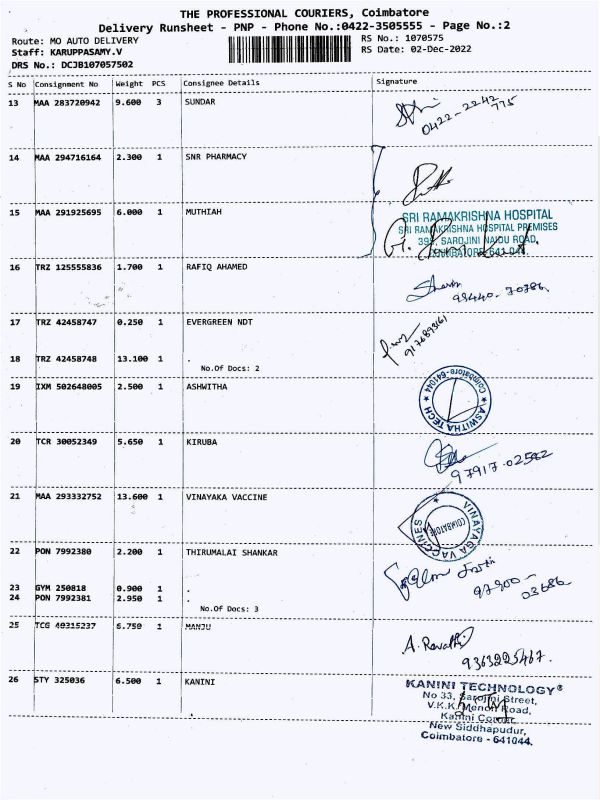 THE PROFESSIONAL COURIERS, Coimbatore
Delivery Runsheet - PNP - Phone No.:0422-3505555 - Page No.:2
Route: MO AUTO DELIVERY RS No.: 1070575
Staff: KARUPPASAMY.V RS Date: 02-Dec-2022
DRS No.: DCJB107057502
S No Consignment No Weight PCS Consignee Details Signature
13 MAA 283720942 9.600 3 SUNDAR
0422-2242
775
14 MAA 294716164 2.300 1 SNR PHARMACY
15 MAA 291925695 6.000 1 MUTHIAH
SRI RAMAKRISHNA HOSPITAL
SRI RAMAKRISHNA HOSPITAL PREMISES
395, SAROJINI NAIDU ROAD,
COIMBATORE-641 044.
16 TRZ 125555836 1.700 1 RAFIQ AHAMED
98440-70786
17 TRZ 42458747 0.250 1 EVERGREEN NDT
18 TRZ 42458748 13.100 1 .
No.Of Docs: 2
19 IXM 502648005 2.500 1 ASHWITHA
ASWITHA TECH ★ Coimbatore-641044 ★
20 TCR 30052349 5.650 1 KIRUBA
97917-02582
21 MAA 293332752 13.600 1 VINAYAKA VACCINE
VINAYAGA VACCINES
COIMBATORE
22 PON 7992380 2.200 1 THIRUMALAI SHANKAR
97900-
03686
23 GYM 250818 0.900 1 .
24 PON 7992381 2.950 1 .
No.Of Docs: 3
25 TCG 40315237 6.750 1 MANJU
A. Revathi
9363225467.
26 STY 325036 6.500 1 KANINI
KANINI TECHNOLOGY®
No 33, Sarojini Street,
V.K.K. Menon Road,
Kanini Corner,
New Siddhapudur,
Coimbatore - 641044.